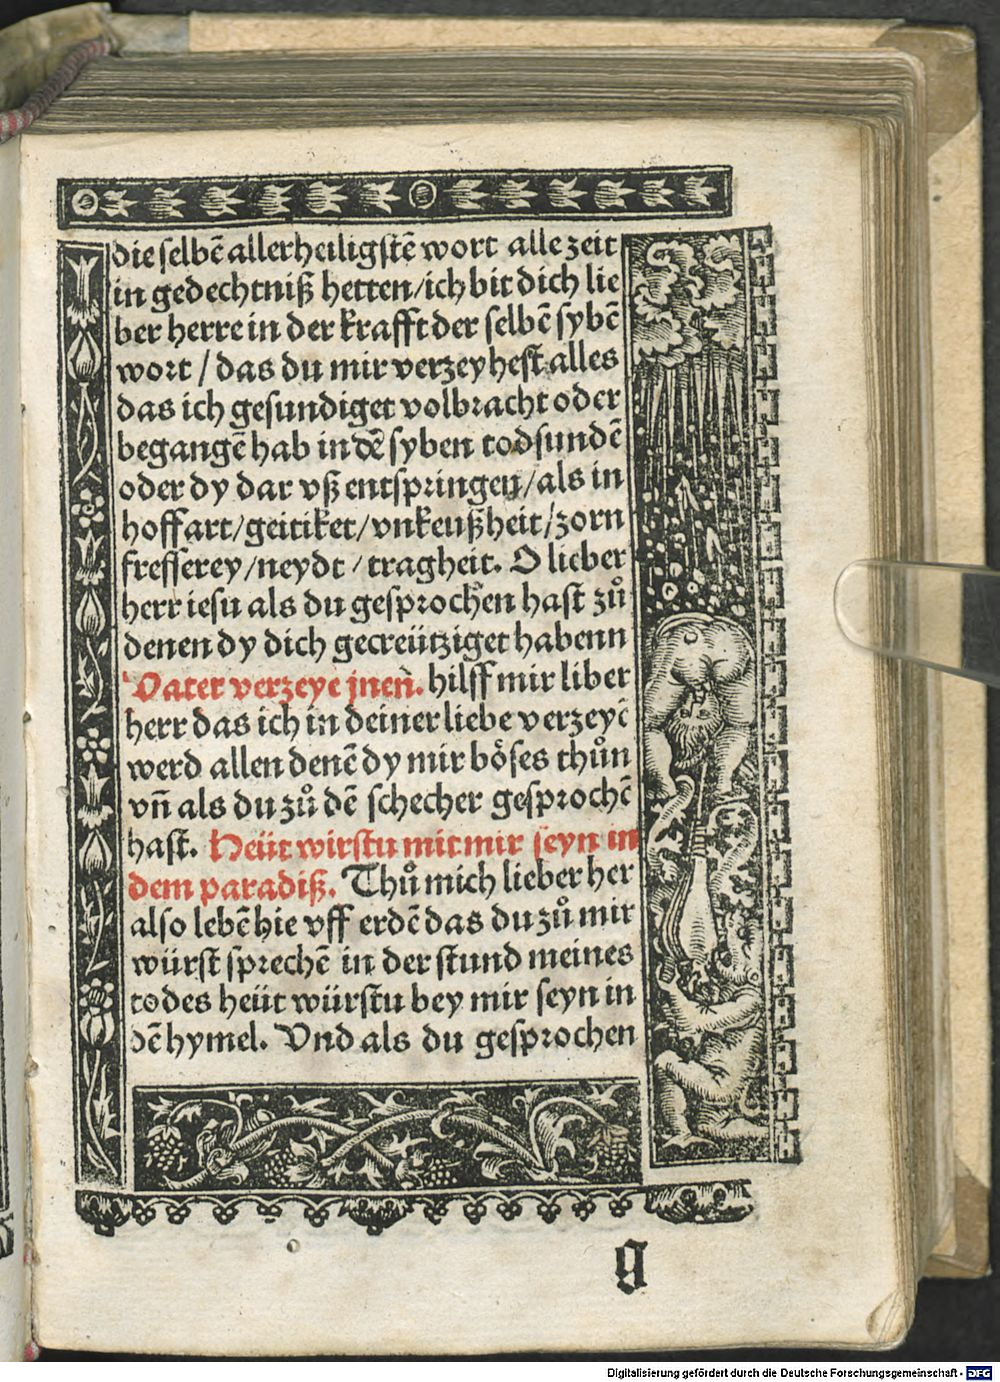 die selbē allerheiligstē wort alle zeit
in gedechtniß hetten/ich bit dich lie
ber herre in der krafft der selbē sybē
wort / das du mir verzeyhest alles
das ich gesundiget volbracht oder
begangē hab in dē syben todsundē
oder dy dar vß entspringen/als in
hoffart/geitiket/vnkeußheit/zorn
fresserey/neydt/tragheit. O lieber
herr iesu als du gesprochen hast zů
denen dy dich gecreütziget habenn
Vater verzeye jnen. hilff mir liber
herr das ich in deiner liebe verzeyē
werd allen denē dy mir böses thůn
vñ als du zů dē schecher gesprochē
hast. Heüt wirstu mit mir seyn in
dem paradiß. Thů mich lieber her
also lebē hie vff erdē das du zů mir
würst sprechē in der stund meines
todes heüt würstu bey mir seyn in
dē hymel. Vnd als du gesprochen
g
Digitalisierung gefördert durch die Deutsche Forschungsgemeinschaft - DFG